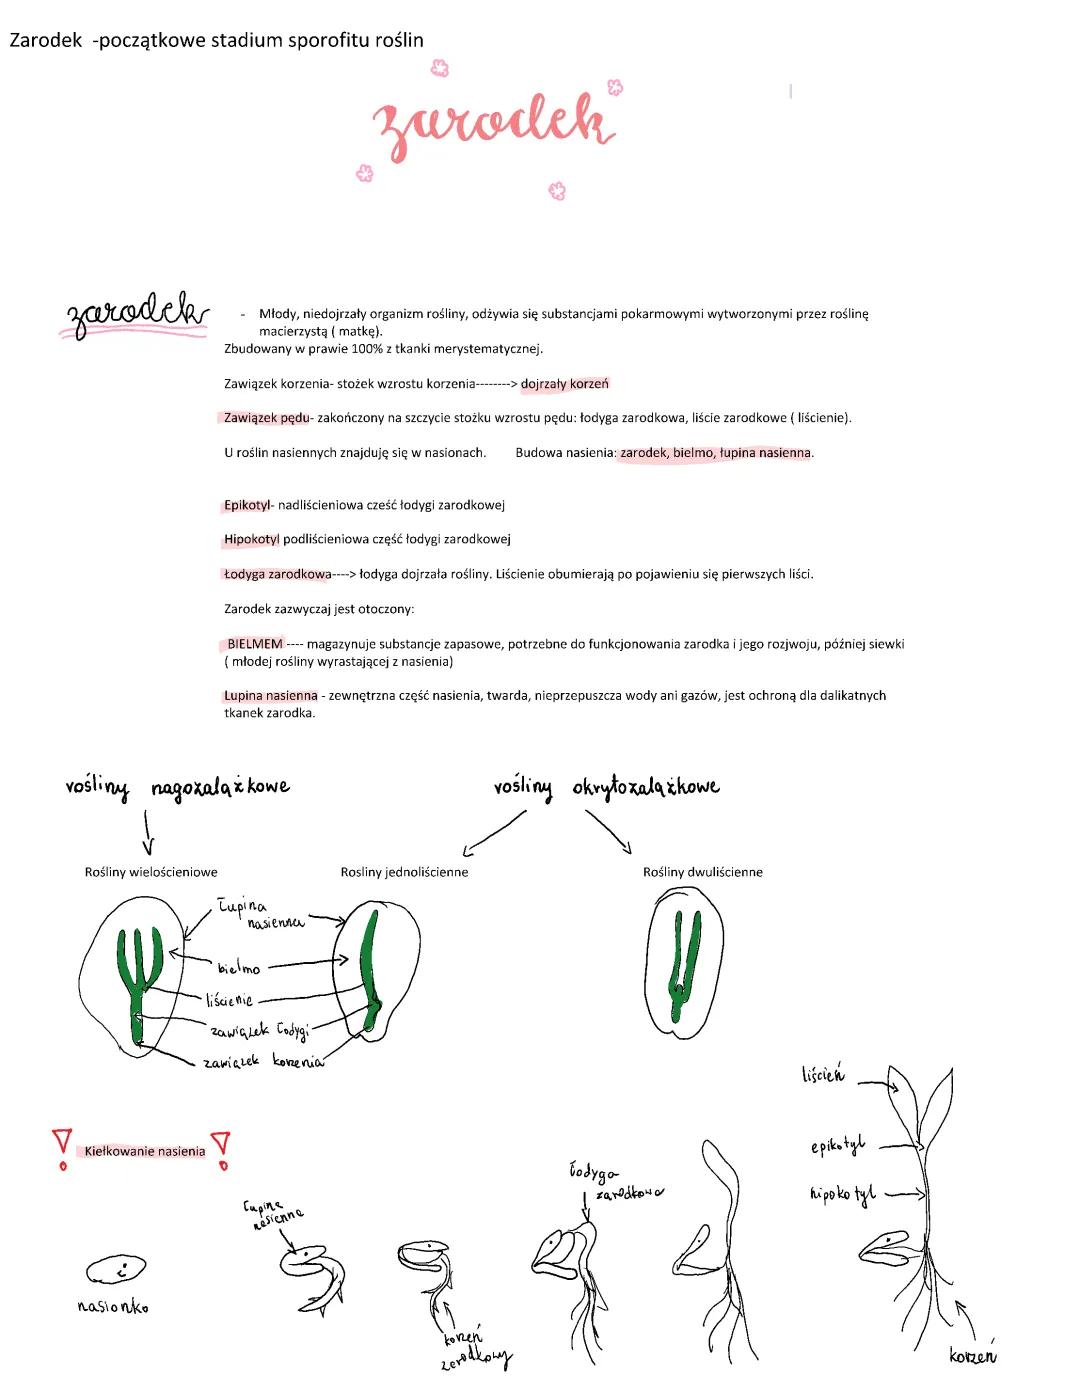 Zarodek -początkowe stadium sporofitu roślin
zarodek
zarodek
- Młody, niedojrzały organizm rośliny, odżywia się substancjami pokarmowymi wytworzonymi przez roślinę
macierzystą ( matkę).
Zbudowany w prawie 100% z tkanki merystematycznej.
Zawiązek korzenia- stożek wzrostu korzenia--------> dojrzały korzeń
Zawiązek pędu- zakończony na szczycie stożku wzrostu pędu: łodyga zarodkowa, liście zarodkowe ( liścienie).
U roślin nasiennych znajduję się w nasionach. Budowa nasienia: zarodek, bielmo, łupina nasienna.
Epikotyl- nadliścieniowa cześć łodygi zarodkowej
Hipokotyl podliścieniowa część łodygi zarodkowej
Łodyga zarodkowa----> łodyga dojrzała rośliny. Liścienie obumierają po pojawieniu się pierwszych liści.
Zarodek zazwyczaj jest otoczony:
BIELMEM ---- magazynuje substancje zapasowe, potrzebne do funkcjonowania zarodka i jego rozjwoju, później siewki
( młodej rośliny wyrastającej z nasienia)
Lupina nasienna - zewnętrzna część nasienia, twarda, nieprzepuszcza wody ani gazów, jest ochroną dla dalikatnych
tkanek zarodka.
rośliny nagozalążkowe
rośliny okrytozalążkowe
Rośliny wielościeniowe
Rosliny jednoliścienne
Rośliny dwuliścienne
Łupina
nasienna
bielmo
liścienie
zawiązek łodygi
zawiązek korzenia
liścień
epikotyl
hipokotyl
Kiełkowanie nasienia
łodyga
zarodkowa
łupina
nasienna
nasionko
korzeń
zarodkowy
korzeń